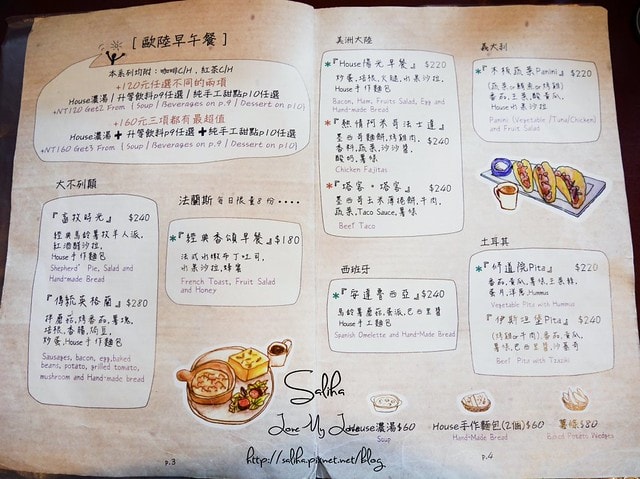 [ 歐陸早午餐 ]
本系列均附：咖啡C/H，紅茶C/H
+120元任選不同的兩項
House濃湯 / 升等飲料p9任選 / 純手工甜點p10任選
+NT120 Get2 From ( Soup / Beverages on p.9 / Dessert on p10)
+160元三項都有最超值
House濃湯 + 升等飲料p9任選 + 純手工甜點p10任選
+NT160 Get3 From ( Soup / Beverages on p.9 / Dessert on p10)
大不列顛
『畜牧時光』 $240
經典馬鈴薯牧羊人派，
紅酒醋沙拉，
House手作麵包
Shepherd' Pie, Salad and
Hand-made Bread
『傳統英格蘭』 $280
拌蘑菇，烤番茄，薯塊，
培根，香腸，焗豆，
炒蛋，House手作麵包
Sausages, bacon, egg,baked
beans, potato, grilled tomato,
mushroom and Hand-made bread
法蘭斯 每日限量8份‧‧‧‧
*『經典香頌早餐』 $180
法式水嫩布丁吐司，
水果沙拉，蜂蜜
French Toast, Fruit Salad
and Honey
p.3
美洲大陸
*『House陽光早餐』 $220
炒蛋，培根，火腿，水果沙拉，
House手作麵包
Bacon, Ham, Fruits Salad, Egg and
Hand-made Bread
*『熱情阿米哥法士達』
墨西哥麵餅，烤雞肉， $240
香料，蔬菜，沙沙醬，
酸奶，薯條
Chicken Fajitas
*『塔客‧塔客』 $240
墨西哥玉米薄捲餅，牛肉，
蔬菜，Taco Sauce，薯條
Beef Taco
西班牙
*『安達魯西亞』 $240
馬鈴薯蘑菇，蛋派，巴西里醬
House手工麵包
Spanish Omelette and Hand-Made Bread
義大利
*『木核蔬果Panini』 $220
番茄，生菜，酸黃瓜，
House水果沙拉
Panini (Vegetable /Tuna/Chicken)
and Fruit Salad
土耳其
*『修道院Pita』 $220
番茄，黃瓜，薯條，生菜絲，
蛋片，洋蔥，Hummus
Vegetable Pita with Hummus
*『伊斯坦堡Pita』 $240
(烤雞or牛肉)，番茄，黃瓜，
薯條，巴西里醬，沙慕奇
Beef Pita with Tzaziki
House濃湯$60
Soup
House手作麵包(2個)$60
Hand-Made Bread
薯條$80
Baked Potato Wedges
p.4
Saliha
Love My Love
http://saliha.pixnet.net/blog